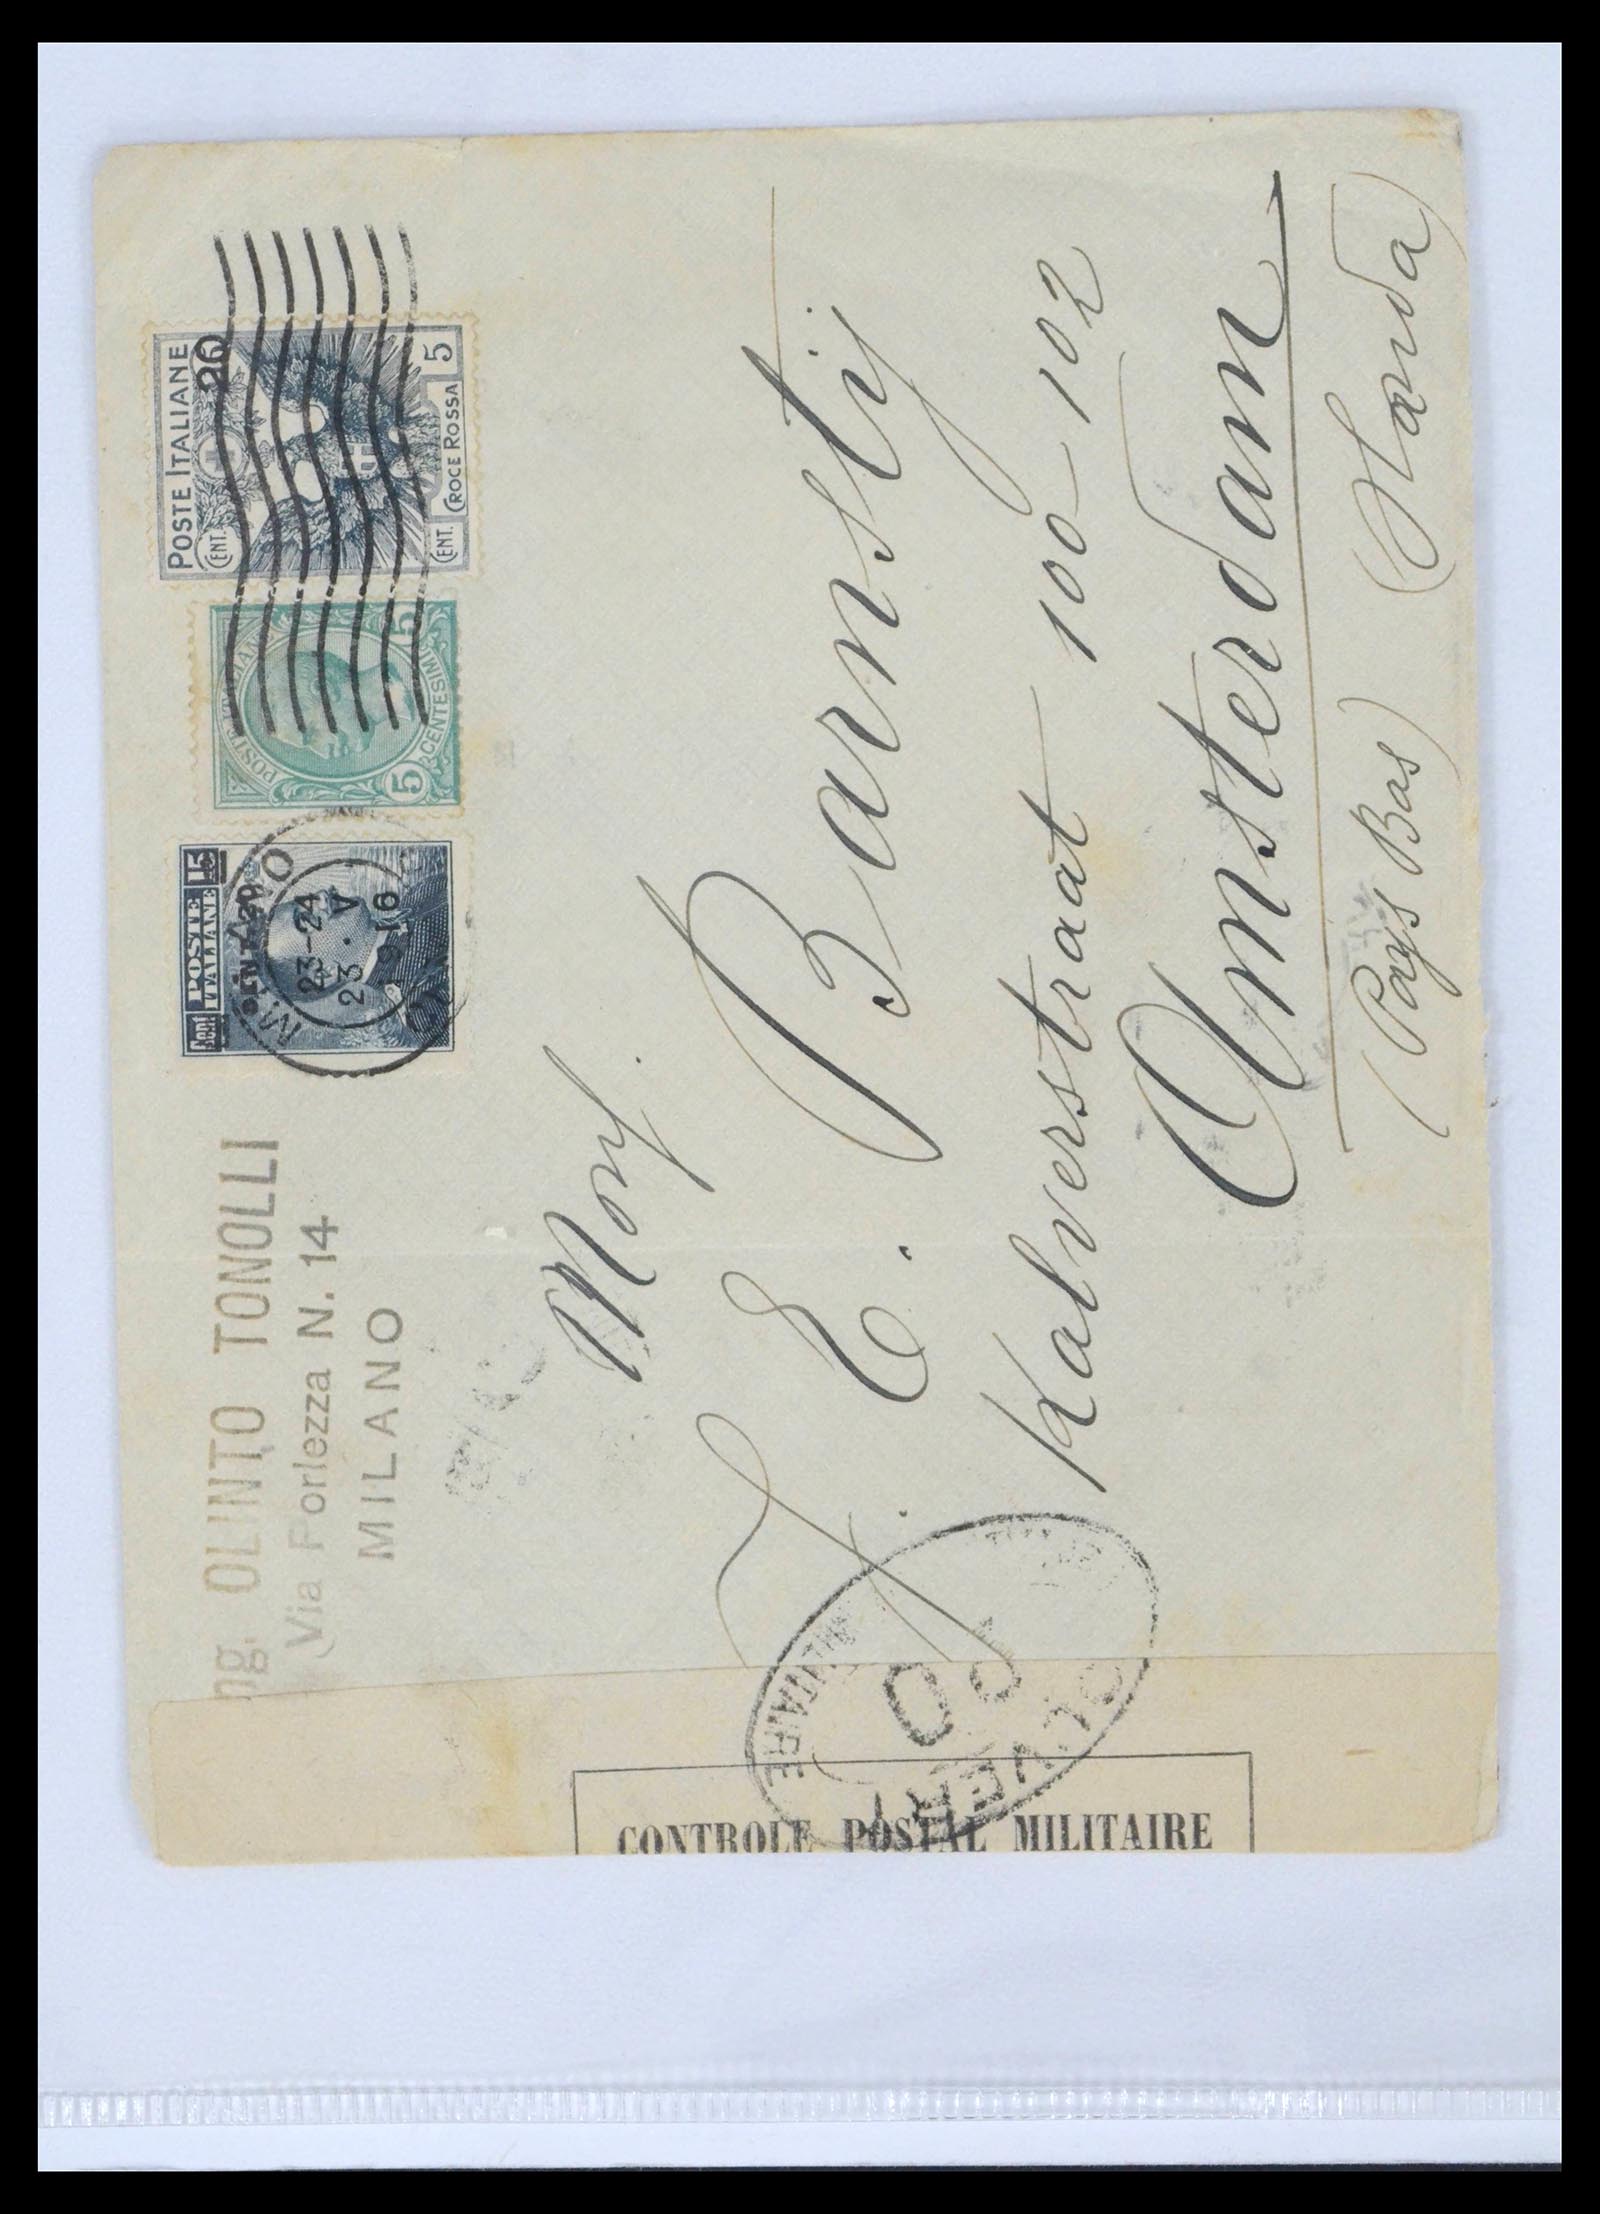 ng. OLINTO TONOLLI
Via Porlezza N. 14
MILANO
Cent. 15
POSTE ITALIANE
CENT 20
MILANO
23-24
23 V
1916
POSTE ITALIANE
5 CENTESIMI 5
POSTE ITALIANE
CENT. 20
CENT. 5
CROCE ROSSA
E. Barnstijn
Kalverstraat 100-102
Amsterdam
(Pays Bas) (Olanda)
MILITAIRE
OUVERT
CONTROLE POSTAL MILITAIRE